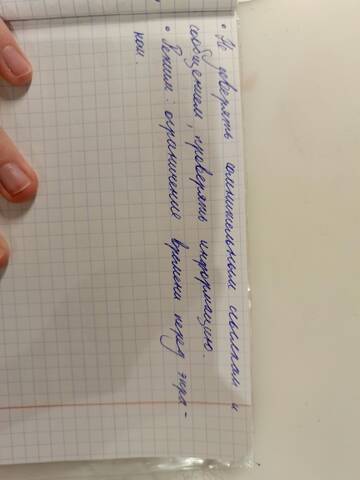 • Не доверять сомнительным ссылкам и
сообщением, проверять информацию.
• Режим: ограничение времени перед экра-
ном.